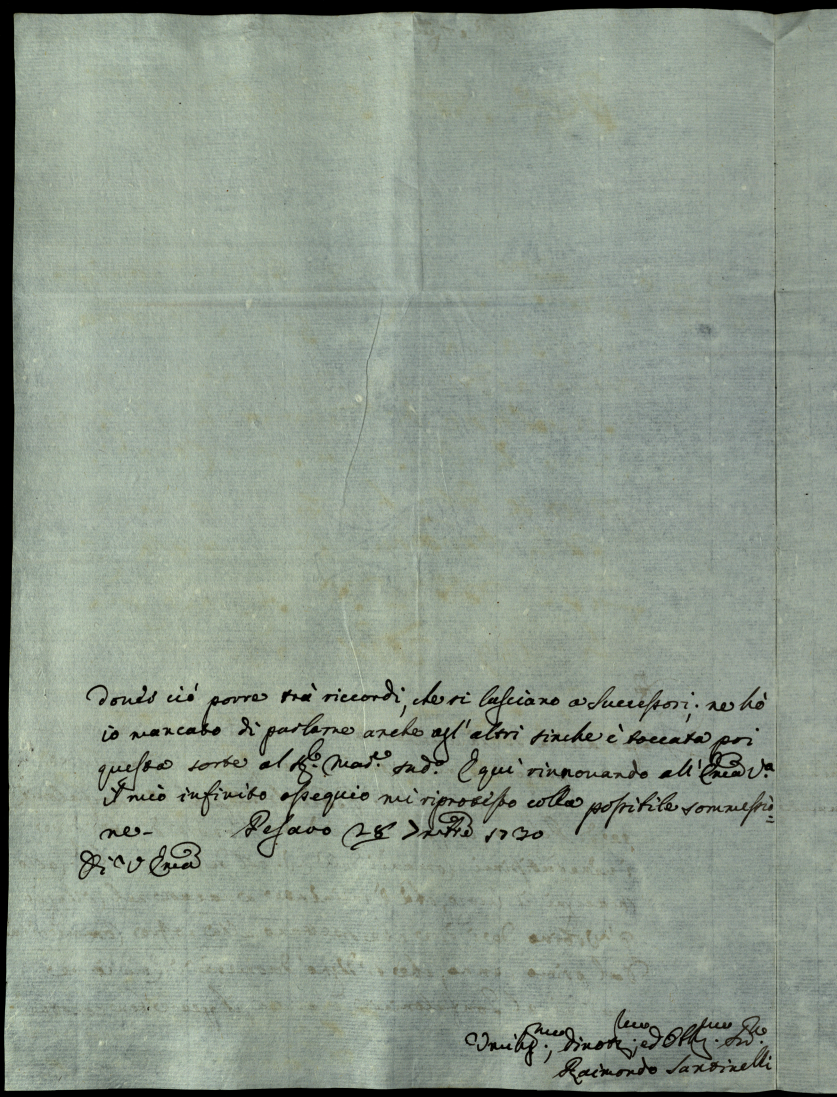 doversi ciò porre trà riccordi, che si lasciano a Successori; ne hò
io mancato di parlarne anche agl'altri sinche è toccata poi
questa sorte al Sud.º E qui rinnovando all'Emza V.ª
il mio infinito ossequio mi riprotesto colla possibile sommessio=
ne. Pesaro 28 1730
Di V Emza
Umilis.mo, divotis.mo, ed Obblig.mo
Raimondo Santinelli